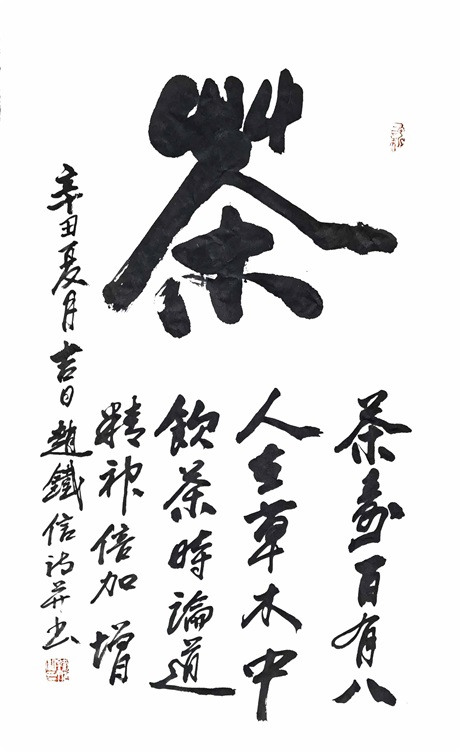 茶
茶壽百有八
人在草木中
飲茶時論道
精神倍加增
辛丑夏月吉日趙鐵信詩并書